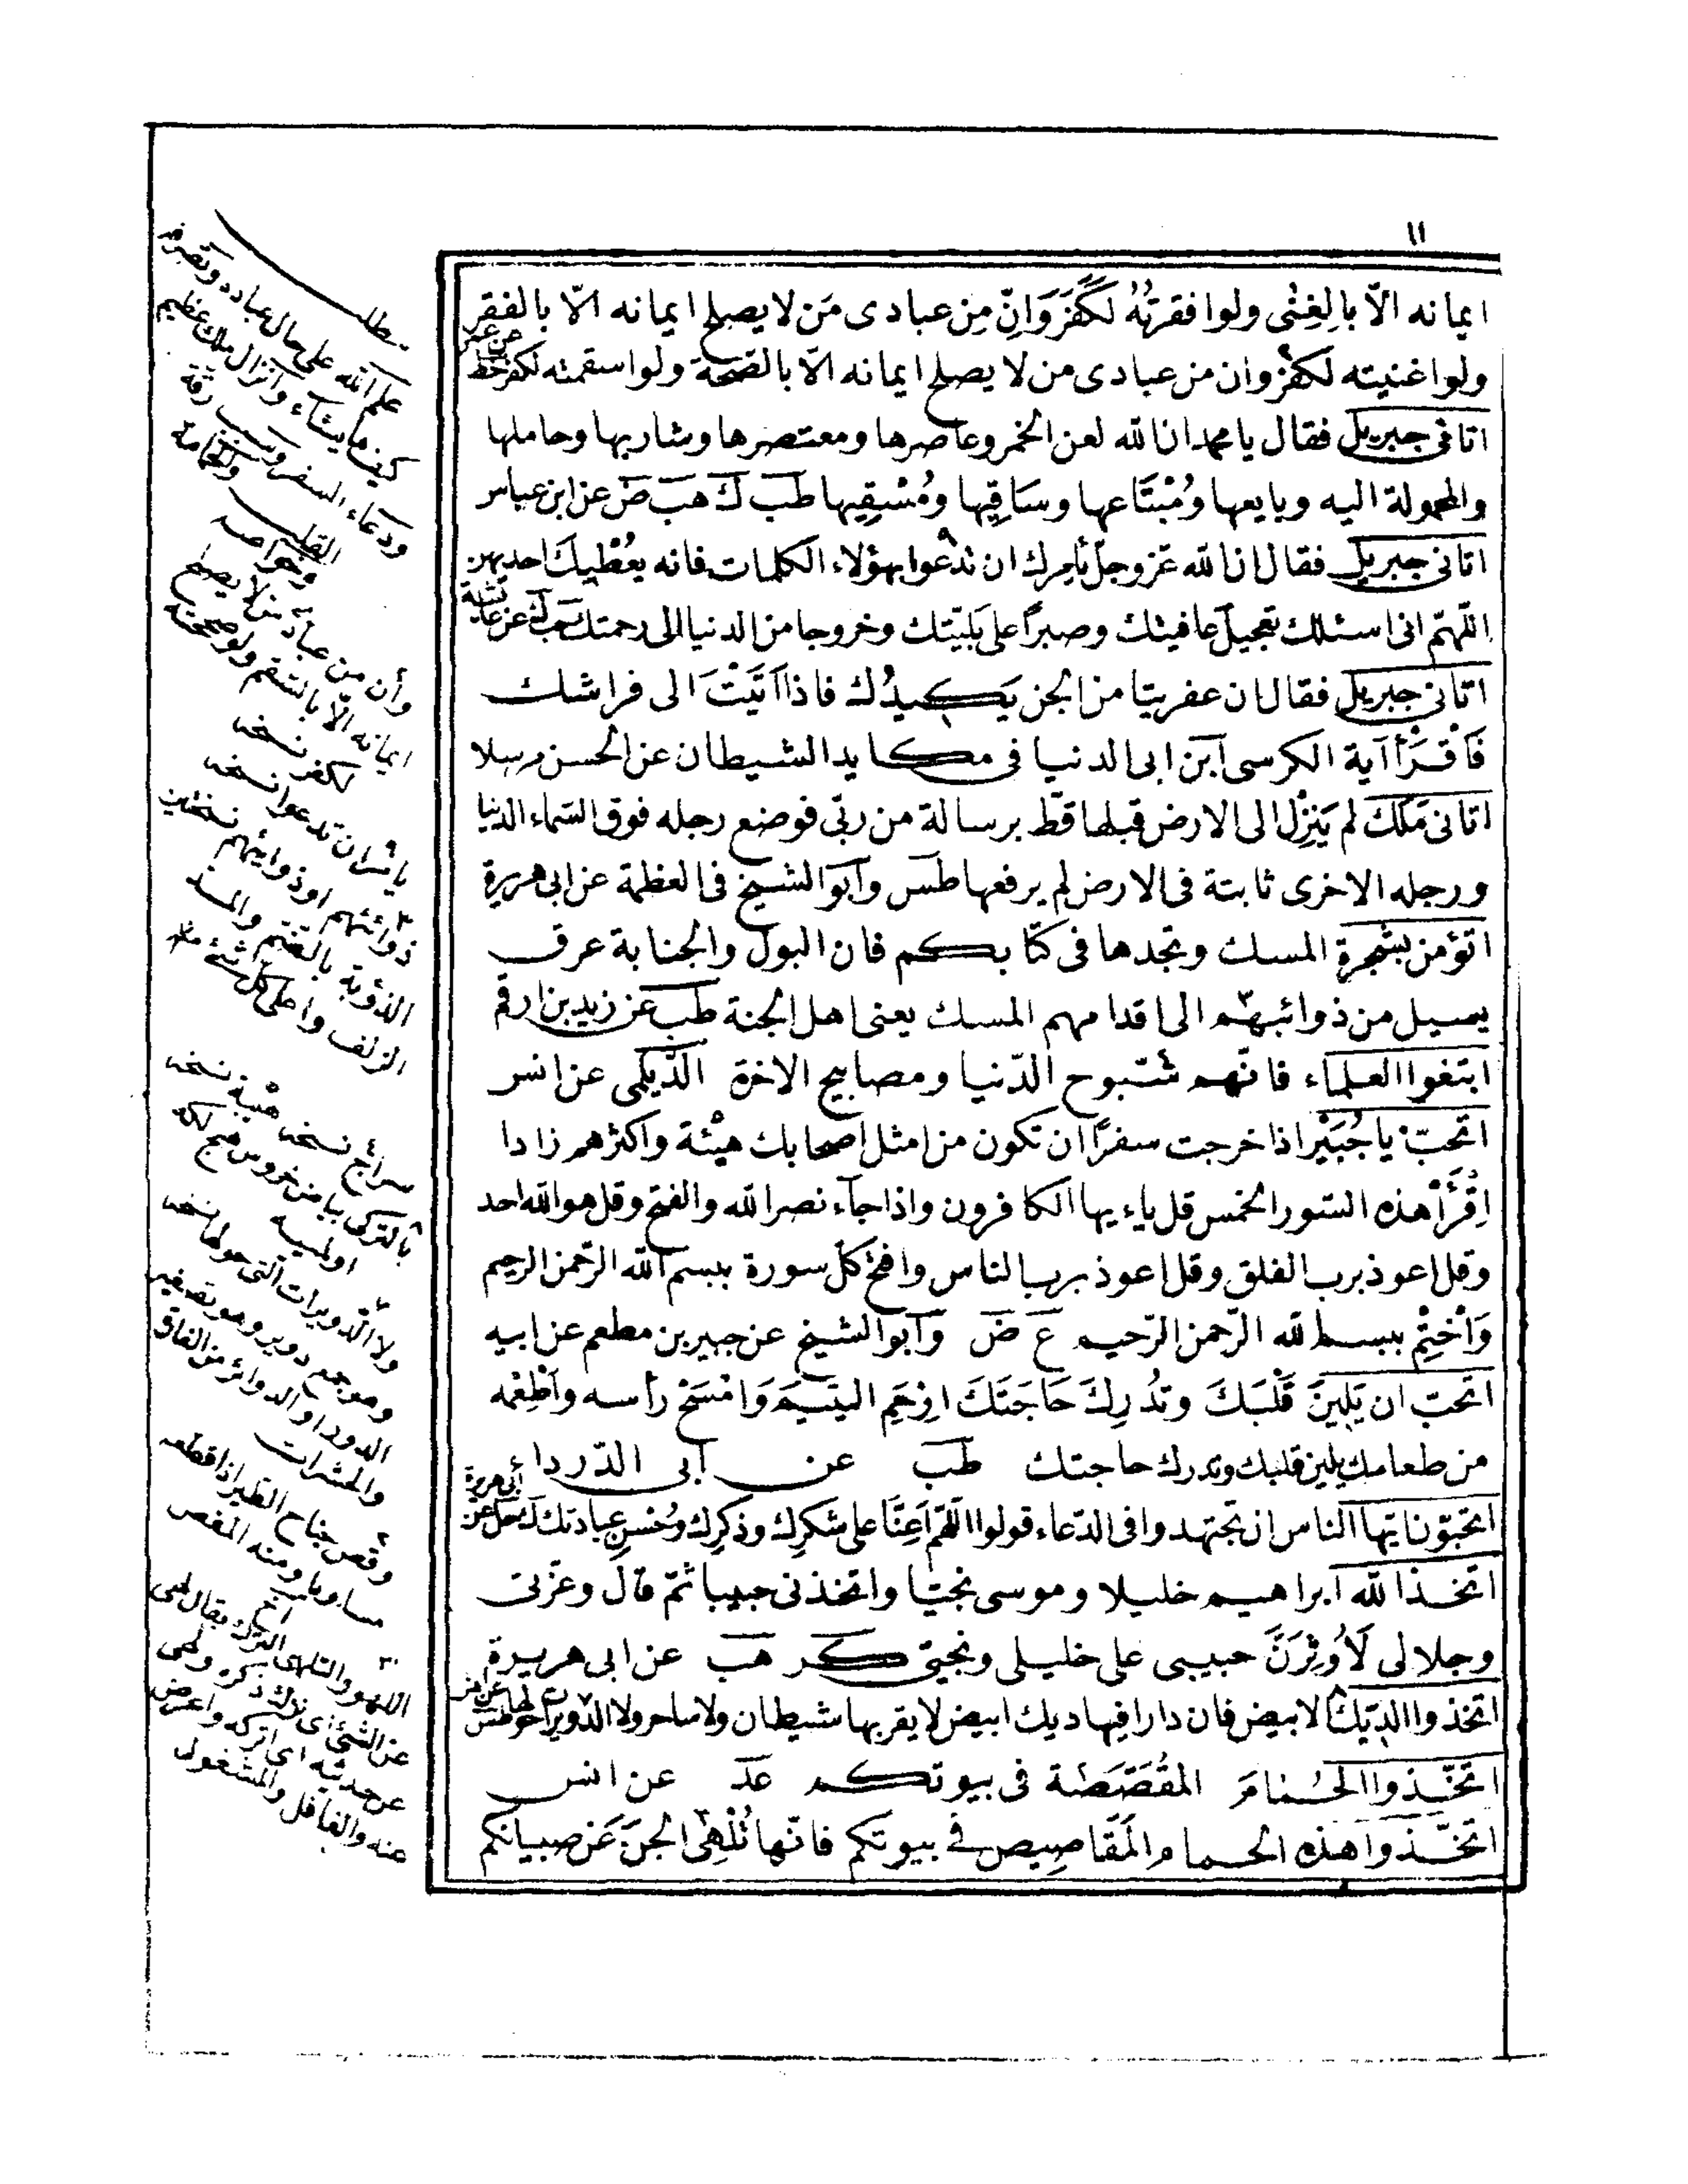 ١١
ايمانه الّا بالغِنٰى ولوا فقرتُهُ لَكَفَرَ وَاِنَّ مِن عبادى مَن لا يصلح ايمانه الّا بالفقر
ولوا غنيته لكفر وان من عبادى من لا يصلح ايمانه الّا بالصّحة ولوا سقمته لكفر خط عن عمر
اتانى جبريل فقال يا محمد ان الله لعن الخمر وعاصرها ومعتصرها وشاربها وحاملها
والمحمولة اليه وبايعها ومُبْتَاعها وسَاقِيها ومُسْقِيها طب ك هب ض عن ابن عباس
اتانى جبريل فقال ان الله عزّ وجلّ يأمرك ان تدعوا بهؤلاء الكلمات فانه يعُطْيكَ احديهن
اللّهمّ انى اسئلك تعجيل عافيتك وصبراً على بَلِيّتك وخروجا من الدنيا الى رحمتك حب ك عن عائشة
اتانى جبريل فقال ان عفريتا من الجن يَكيدُك فاذا اَتَيْتَ الى فراشك
فَاقْرَأْ آية الكرسى ابن ابى الدنيا فى مكايد الشيطان عن الحسن مرسلا
اتانى مَلَكٌ لم يَنْزِل الى الارض قبلها قطّ برسالة من ربّى فوضع رجله فوق السّماء الدنيا
ورجله الاخرى ثابتة فى الارض لم يرفعها طس وابو الشيخ فى العظمة عن ابى هريرة
اتؤمن بشجرة المسك وتجدها فى كتابكم فان البول والجنابة عرق
يسيل من ذوائبهم الى اقدامهم المسك يعنى اهل الجنة طب عن زيد بن ارقم
ابتغوا العلماء فانّهم سُبوح الدّنيا ومصابيح الاخرة الدّيلمى عن انس
اتحبّ يا جُبَيْر اذا خرجت سفراً ان تكون من امثل اصحابك هيئة واكثرهم زادا
اِقْرَأْ هذه السّور الخمس قل ياءيها الكافرون واذا جآء نصر الله والفتح وقل هو الله احد
وقل اعوذ برب الفلق وقل اعوذ برب الناس وافتح كل سورة ببسم الله الرّحمن الرحيم
وَاخْتِمْ ببسم الله الرّحمن الرّحيم ع ض وابو الشيخ عن جبير بن مطعم عن ابيه
اتحبّ ان يَلِينَ قَلْبَكَ وتُدْرِكَ حَاجَتَكَ ارْحَمِ اليتيمَ وَامْسَحْ رأسه واَطْعِمْه
من طعامك يلين قلبك وتدرك حاجتك طب عن ابى الدّردا
اتحبّون ايّها الناس ان تجتهدوا فى الدّعاء قولوا اللّهمّ اَعِنَّا على شكرِك وذكرِك وحُسْنِ عبادتك ك حل عن ابى هريرة
اتخذ الله ابراهيم خليلا وموسى نجيّا واتخذنى حبيبا ثمّ قال وعزّتى
وجلالى لَاُوثِرَنَّ حبيبى على خليلى ونجيّى كر هب عن ابى هريرة
اتخذوا الدّيكَ الابيض فان دارا فيها ديك ابيض لا يقربها شيطان ولا ساحر ولا الدّويرات حولها طس عن انس
اتّخذوا الحَمَامَ المقُصَصَة فى بيوتكم عد عن انس
اتّخذوا هذه الحمام المَقَاصِيص فى بيوتكم فانّها تُلْهِى الجنّ عَن صبيانكم
مطلب
علم الله على حال عباده وتصرفه
كيف ما يشاء وانزال ملك عظيم
ودعاء السفر وسبب رقة
القلب
وأن من عبادى من لا يصلح
ايمانه الّا بالسّقم ولو صححته
لكفر نسخه
يا مرك ان تدعوا نسخه
ذوائبهم او ذوايبهم نسختين
سراج نسخه هيئة نسخه
ولا الدويرات التى حولها نسخه
وهو جمع دوير وهو تصغير
والحشرات
وقص جناح الطير اذا قطعه
عن الشئ اى ترك ذكره ولهى
عن حديثه اى تركه واعرض
عنه والغافل والمشغول